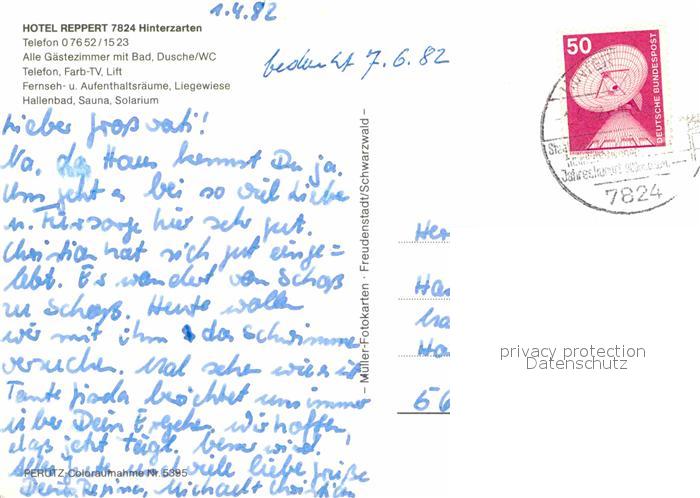 1.4.82
HOTEL REPPERT 7824 Hinterzarten
Telefon 0 76 52 / 15 23
Alle Gästezimmer mit Bad, Dusche/WC
Telefon, Farb-TV, Lift
Fernseh- u. Aufenthaltsräume, Liegewiese
Hallenbad, Sauna, Solarium
7.6.82
Lieber Großvati!
Na, das Haus kennst Du ja.
Uns geht es bei so viel Liebe
u. Fürsorge hier sehr gut.
Christian hat sich gut einge=
lebt. Es wandert von Schoß
zu Schoß. Heute wollen
wir mit ihm das Schwimmen
versuchen. Mal sehen wie es ist
Tante berichtet uns immer
über Dein Ergehen. Wir hoffen,
daß jetzt tägl. besser wird.
viele liebe Grüße
Deine Regina, Michael + Christian
PERUTZ-Coloraufnahme Nr. 5395
– Müller-Fotokarten · Freudenstadt/Schwarzwald –
50
DEUTSCHE BUNDESPOST
7824
Her
Ha
Ha
56
privacy protection
Datenschutz